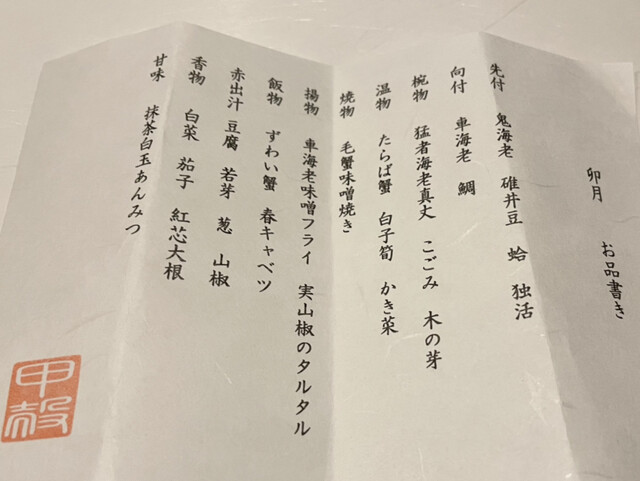 卯月　お品書き
先付　鬼海老　碓井豆　蛤　独活
向付　車海老　鯛
椀物　猛者海老真丈　こごみ　木の芽
温物　たらば蟹　白子筍　かき菜
焼物　毛蟹味噌焼き
揚物　車海老味噌フライ　実山椒のタルタル
飯物　ずわい蟹　春キャベツ
赤出汁　豆腐　若芽　葱　山椒
香物　白菜　茄子　紅芯大根
甘味　抹茶白玉あんみつ
甲殻